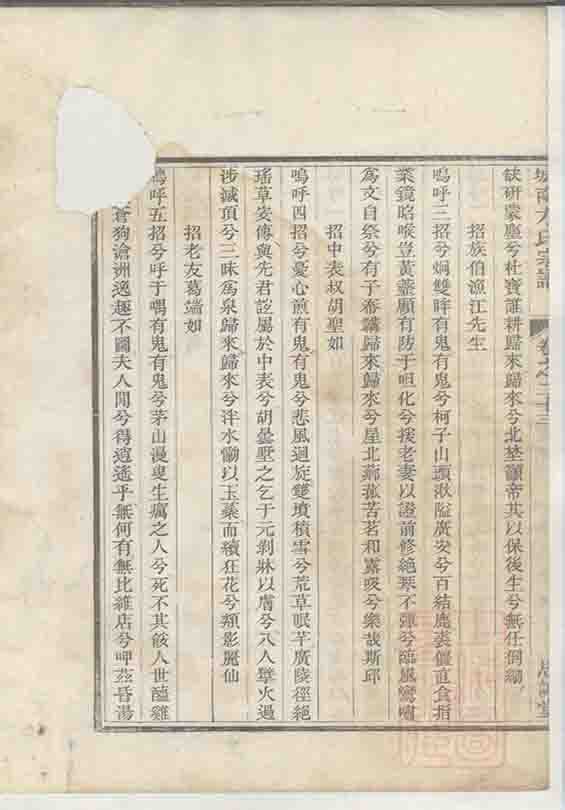 城南方氏宗譜
卷之二十三
缺研蒙塵兮杜寶誰耕歸來歸來兮北埜籲帝其以保後生兮無任倒繃
招族伯漁江先生
嗚呼三招兮炯雙眸有鬼有鬼兮柯子山頭湫隘廣安兮百結鹿裘僵直食指
業鏡昭喉豈黃蘗願有防于呾化兮援老妻以證前修絶琹不彈兮臨風鸞嘯
爲文自祭兮有子番歸來歸來兮星北苦茗和露吸兮樂哉斯邱
招中表叔胡聖如
嗚呼四招兮憂心煎有鬼有鬼兮悲風迴旋雙墳積雪兮荒草眠芊廣陵徑絕
瑤草安傳與先君誼屬於中表兮胡曇墅之乞于元剥牀以膚兮八人擘火過
涉滅頂兮三昧爲泉歸來歸來兮泮水以玉蘂而續狂花兮頮影麗仙
招老友葛端如
嗚呼五招兮呼于喁有鬼有鬼兮茅山漫叟生癘之人兮死不其餒人世醯雞
蒼狗滄洲逸趣不圖夫人閒兮得逍遙乎無何有無比雒店兮呷茲昏湯